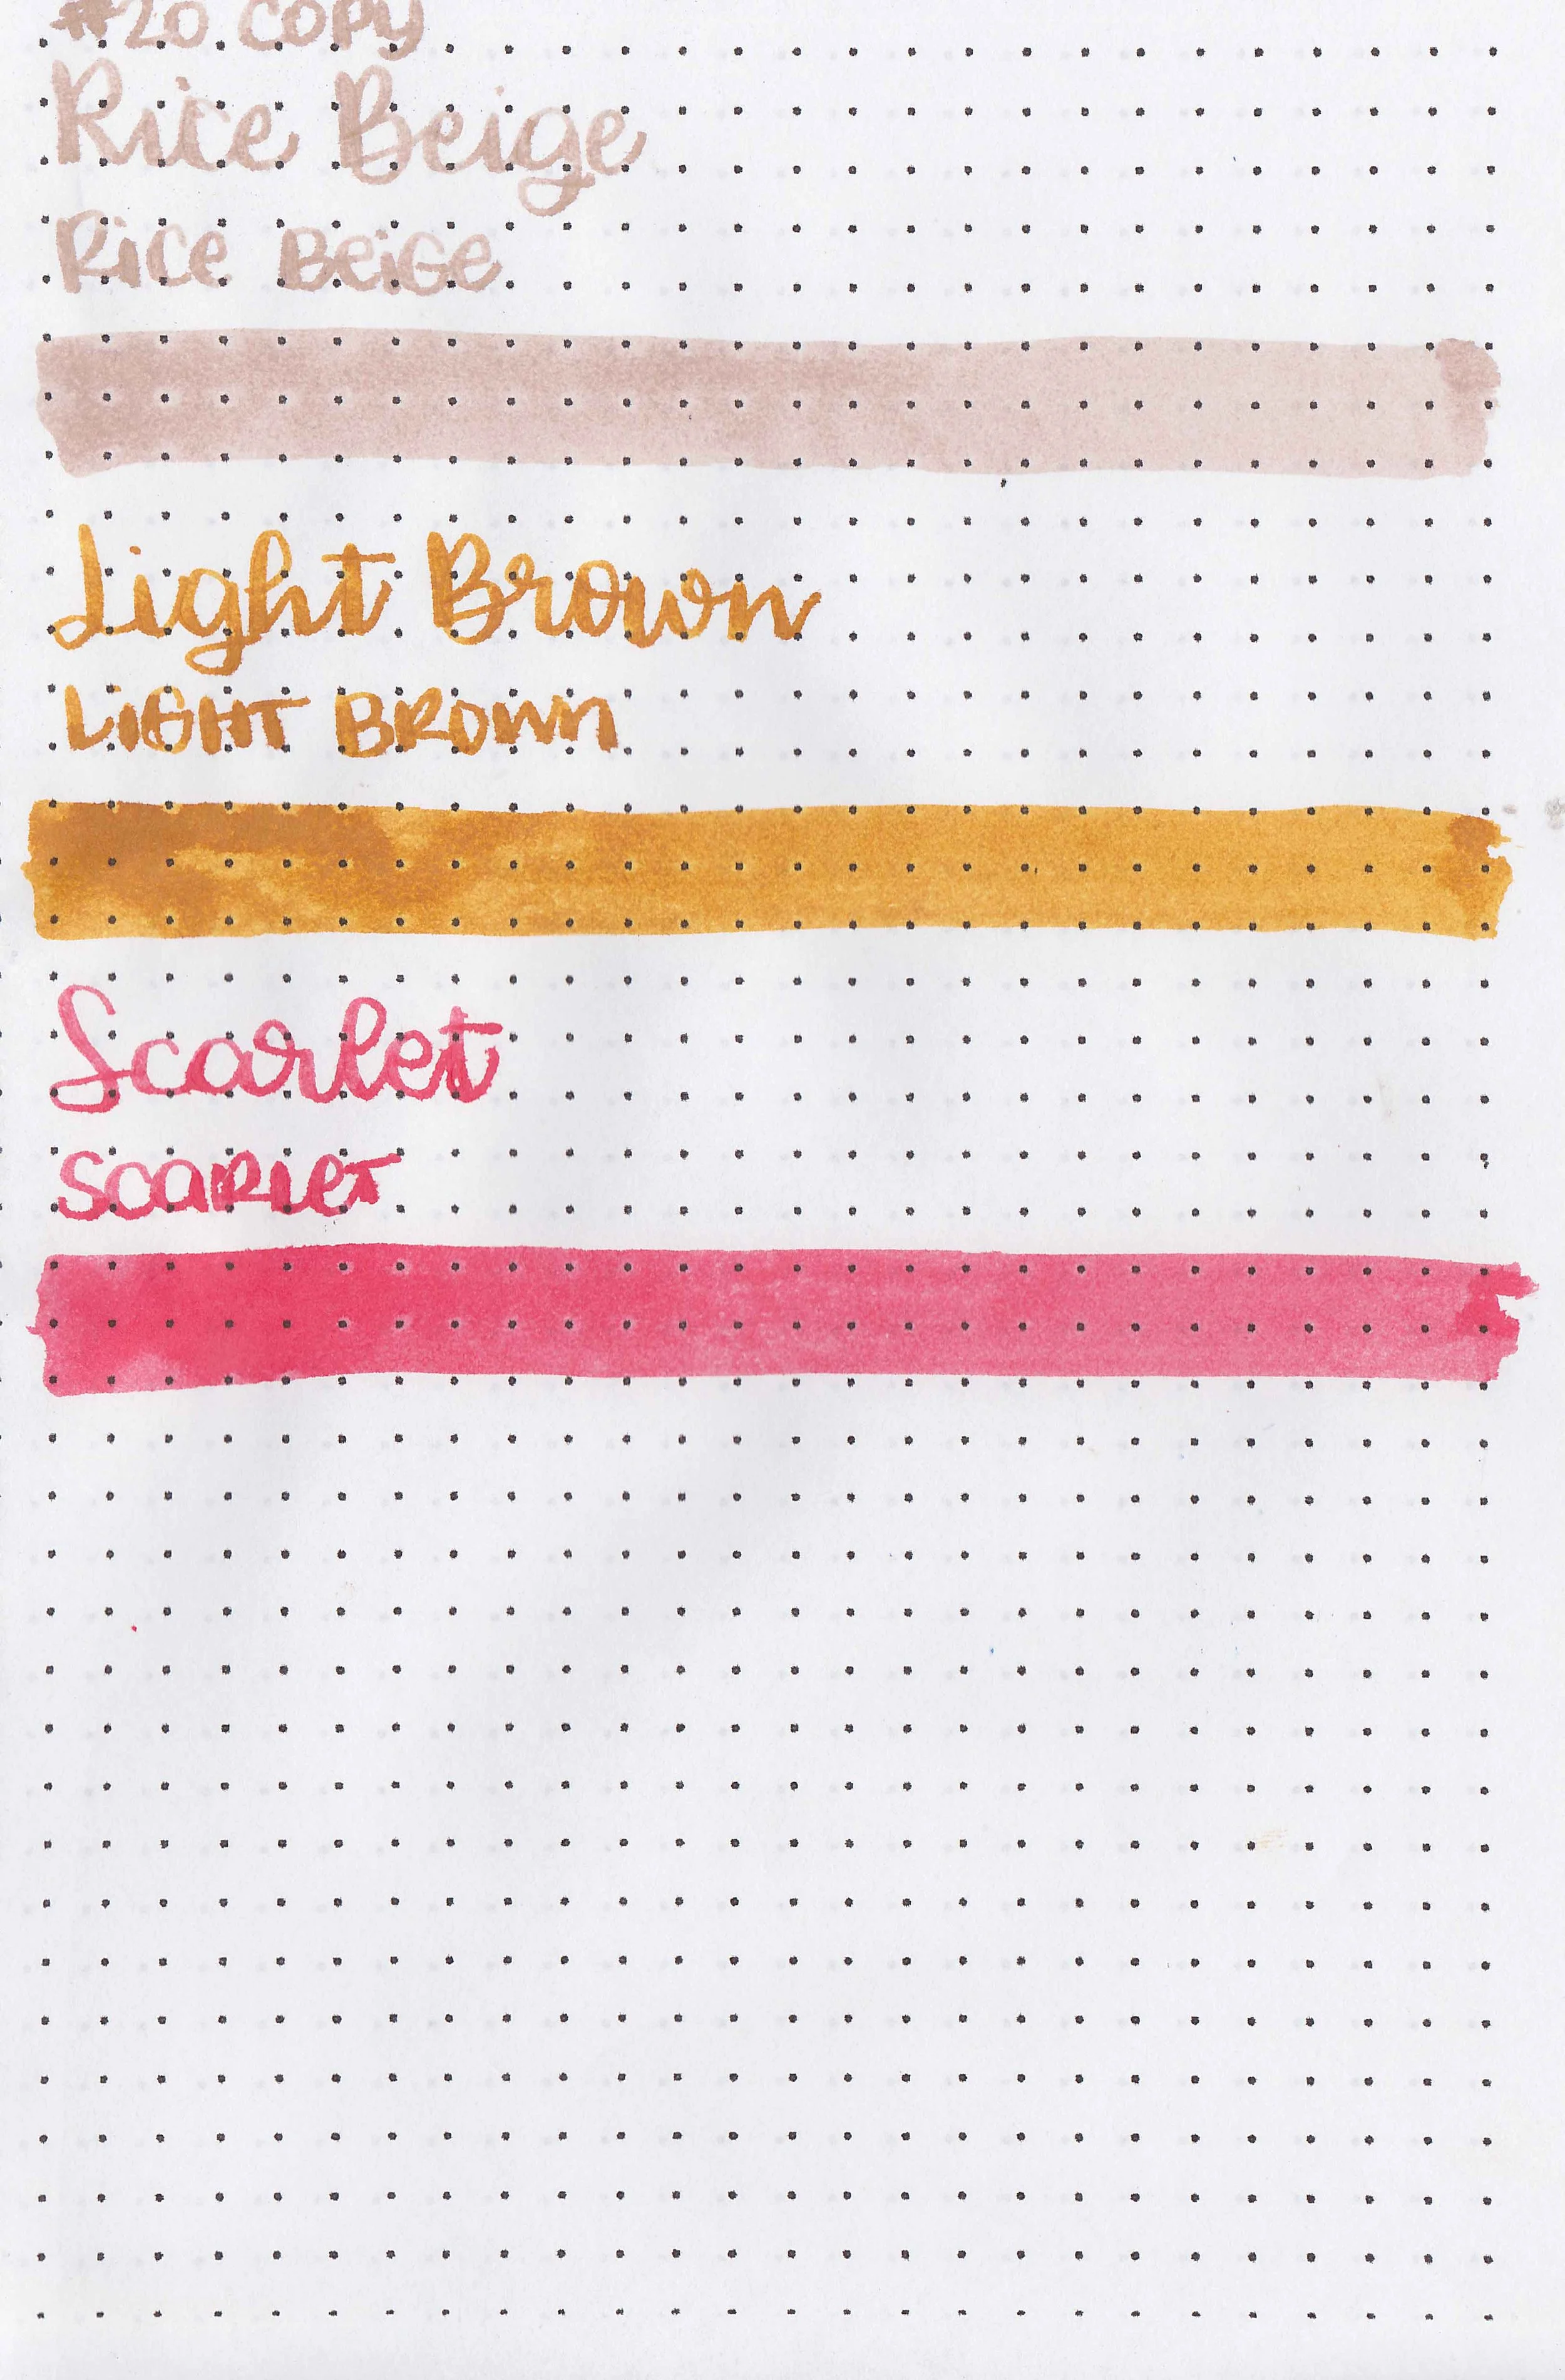 #20 COPY
Rice Beige
Rice BeiGe
Light Brown
LiGHT BROWN
Scarlet
SCARLET